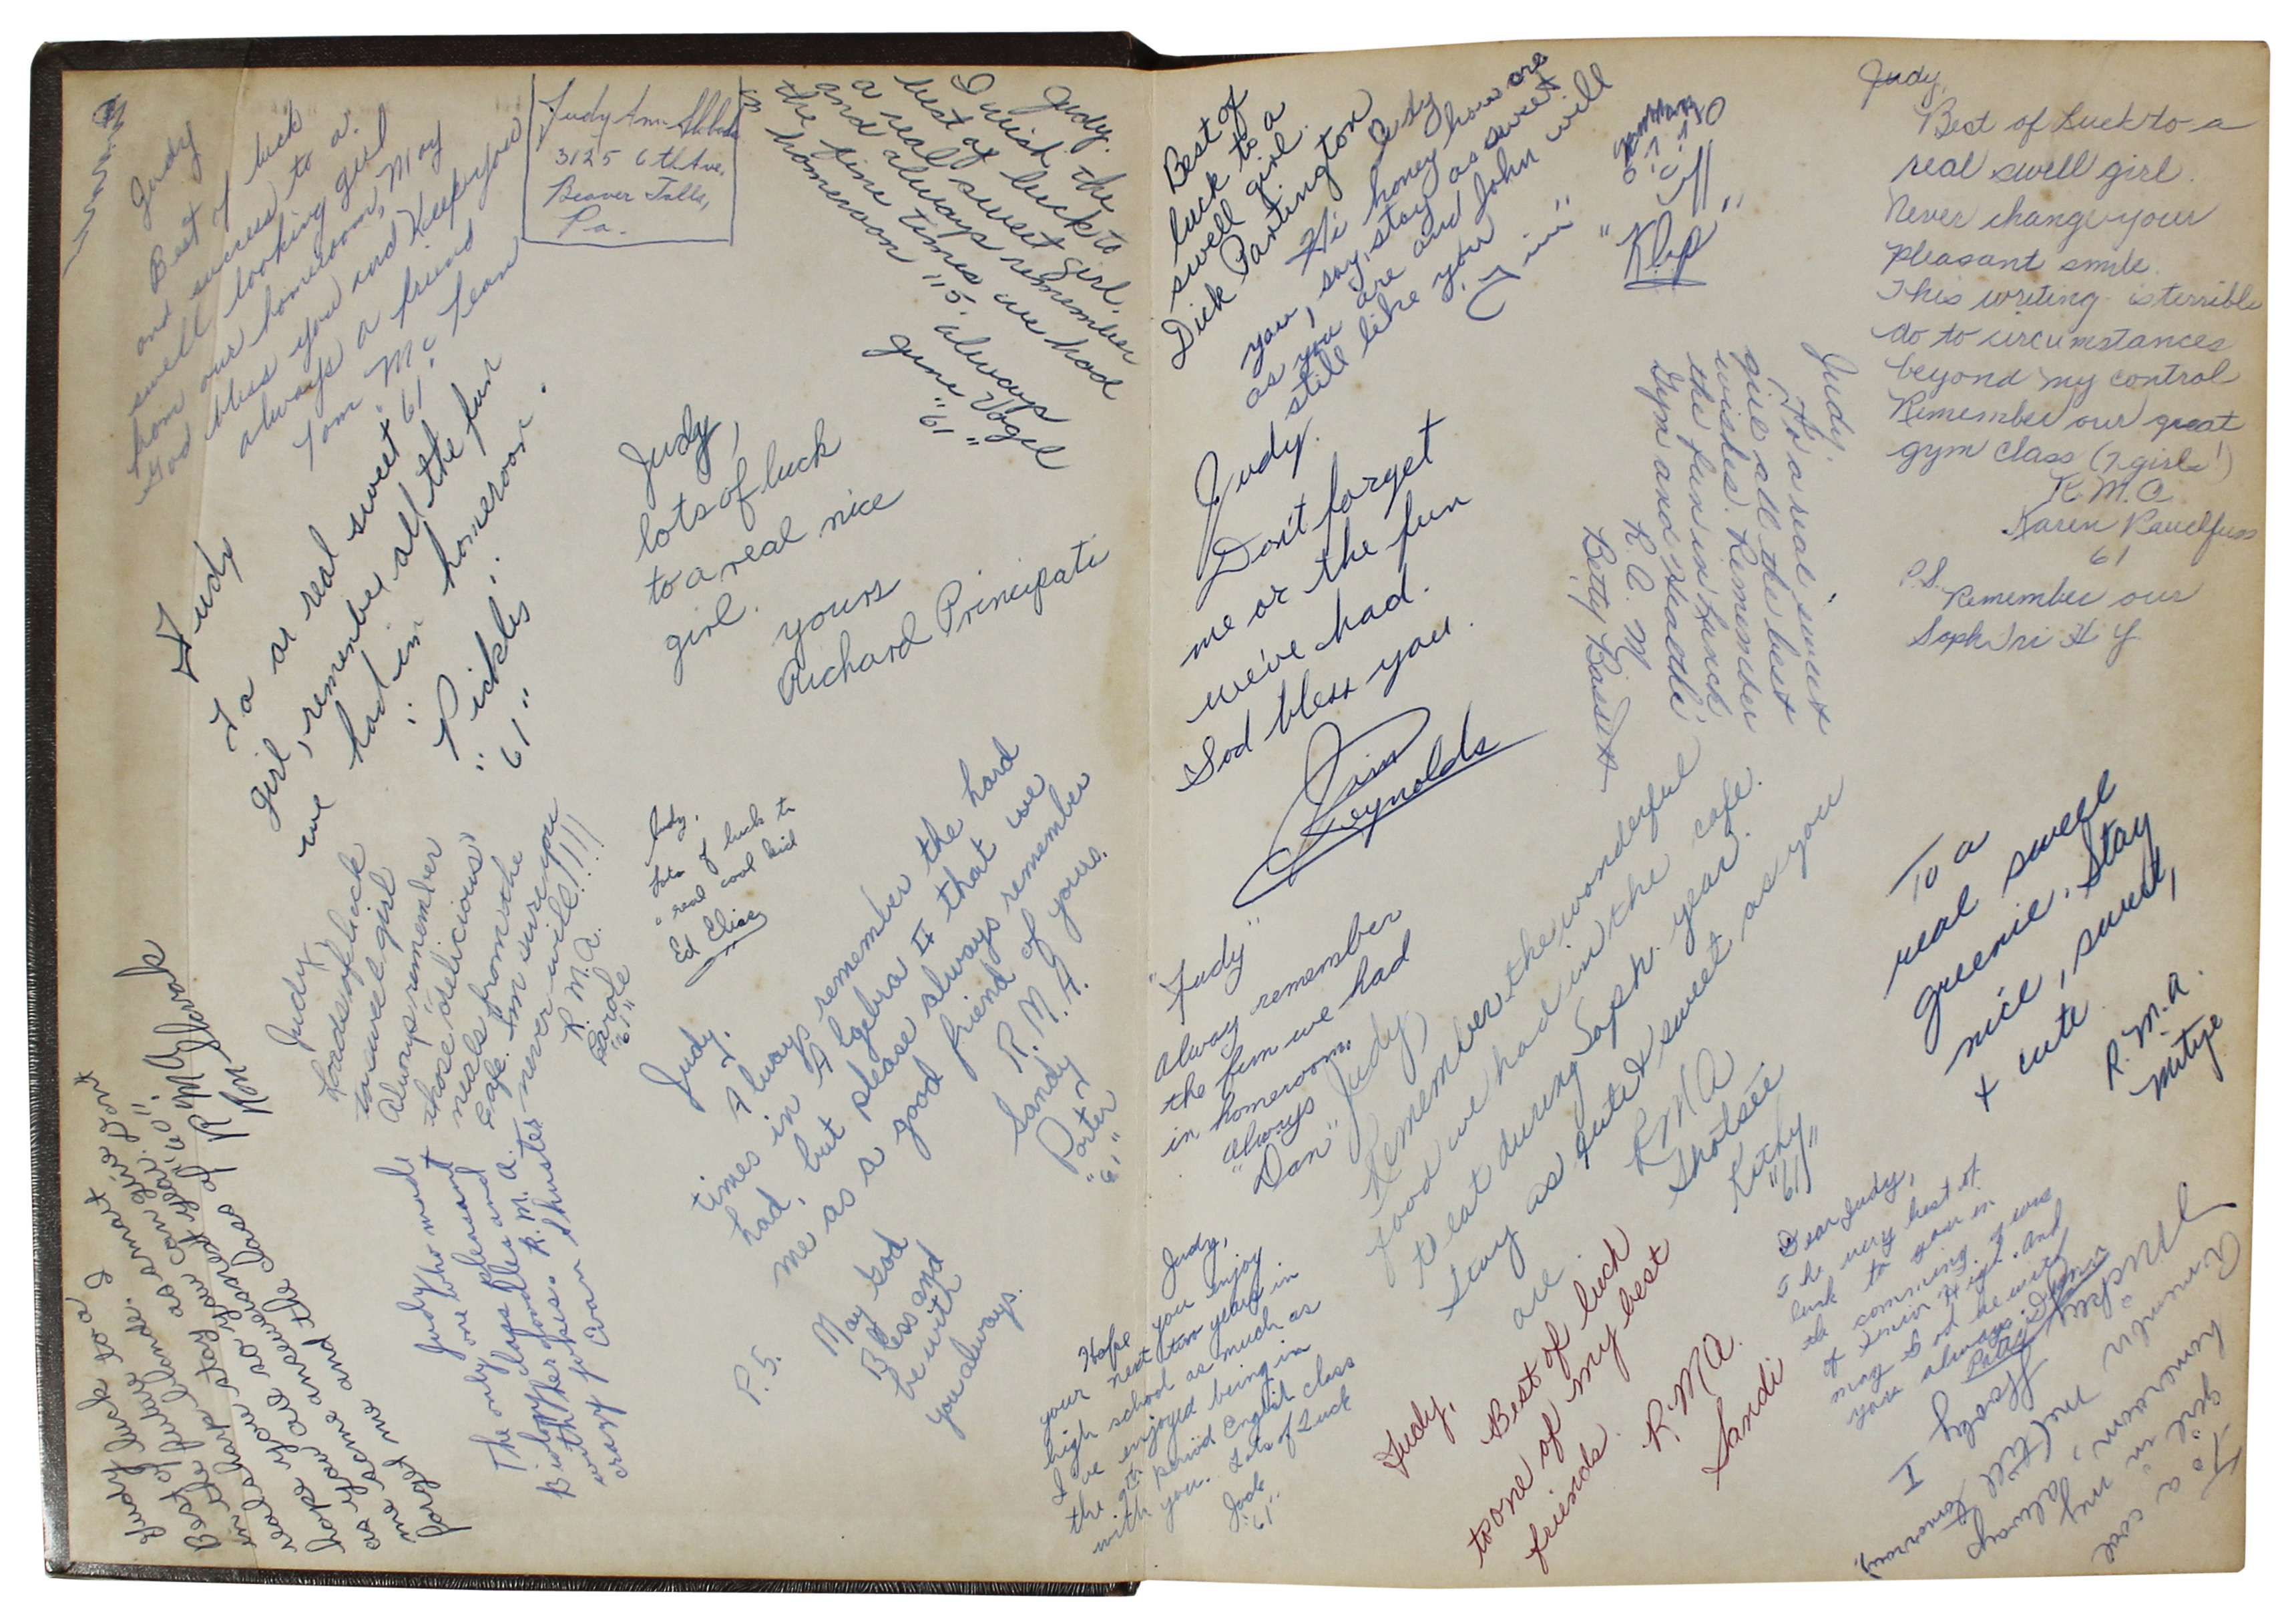 Judy
Best of luck
and success to a
swell looking girl
from our homeroom, May
God bless you and Keep you
always a friend
Tom Mc Lean
61
Judy Ann
3125 6th Ave.
Beaver Falls,
Pa.
Judy.
I wish the
best of luck to
a real sweet girl.
and always remember
the fine times we had
in homeroom "115. always
Gene Vogel
"61"
Judy
To a real sweet
girl, remember all the fun
we had in homeroom.
"Pickles"
"61"
Judy,
lots of luck
to a real nice
girl.
yours
Richard Principati
Judy,
Lots of luck to
a real cool kid
Ed Elias
Judy,
Loads of luck
to a swell girl
Always remember
those "delicious"
meals from the
cafe. I'm sure you
never will!!!!
R.M.A.
Carole
"61"
Judy.
Always remember the hard
times in Algebra II that we
had, but please always remember
me as a good friend of yours.
R.M.A.
Sandy
Porter
"61"
P.S. May God
Bless and
be with
you always.
Judy who made
the only one pleasant
Biology days. Bless and
with other good R.M.A.
crazy jokes.
Evan Shuster
Judy luck to a smart
Best of future blonde. I
in the sharp, stay as can give for t
real you are so you next year. "60"
hope you are answered of R.M.A.
as you came and the class
me some
forget me
Ron Slovak
Best of
luck to a
swell girl.
Dick Partington
Judy
Hi honey how are
you, say, stay as sweet
as you are and John will
still like you
"Jim"
"Klip"
Judy,
Best of Luck to a
real swell girl.
Never change your
pleasant smile.
This writing is terrible
do to circumstances
beyond my control
Remember our great
gym class (7 girls!)
R.M.A.
Karen Rauelfuss
61
P.S. Remember our
Soph Tri Hi Y
Judy.
Don't forget
me or the fun
we've had.
God bless you.
Jim
Reynolds
Judy
To a real sweet
girl all the best
wishes. Remember
the fun in lunch
Gym and Health
R.A.M
Betty Bassett
"Judy"
Always remember
the fun we had
in homeroom.
"Always
Dan"
Judy,
Remember the wonderful
food we had in the cafe.
to eat during Soph. year.
Stay as cute & sweet as you
are
RMA
Shotsee
Kathy
"61"
To a
real sweet
greenie. Stay
nice, sweet,
+ cute.
R.M.A.
Mitzie
Judy,
Hope you enjoy
your next two years in
high school as much as
I've enjoyed being in
the 9th period English class
with you. Lots of Luck
Jack
61"
Judy,
Best of luck
to one of my best
friends.
R.M.A.
Sandi
Dear Judy,
The very best of
luck to you in
the comming years
of Senior High. And
may God be with
you always.
To a cool
girl in my
homeroom, always
Remember me (till tomorrow)
Mickey